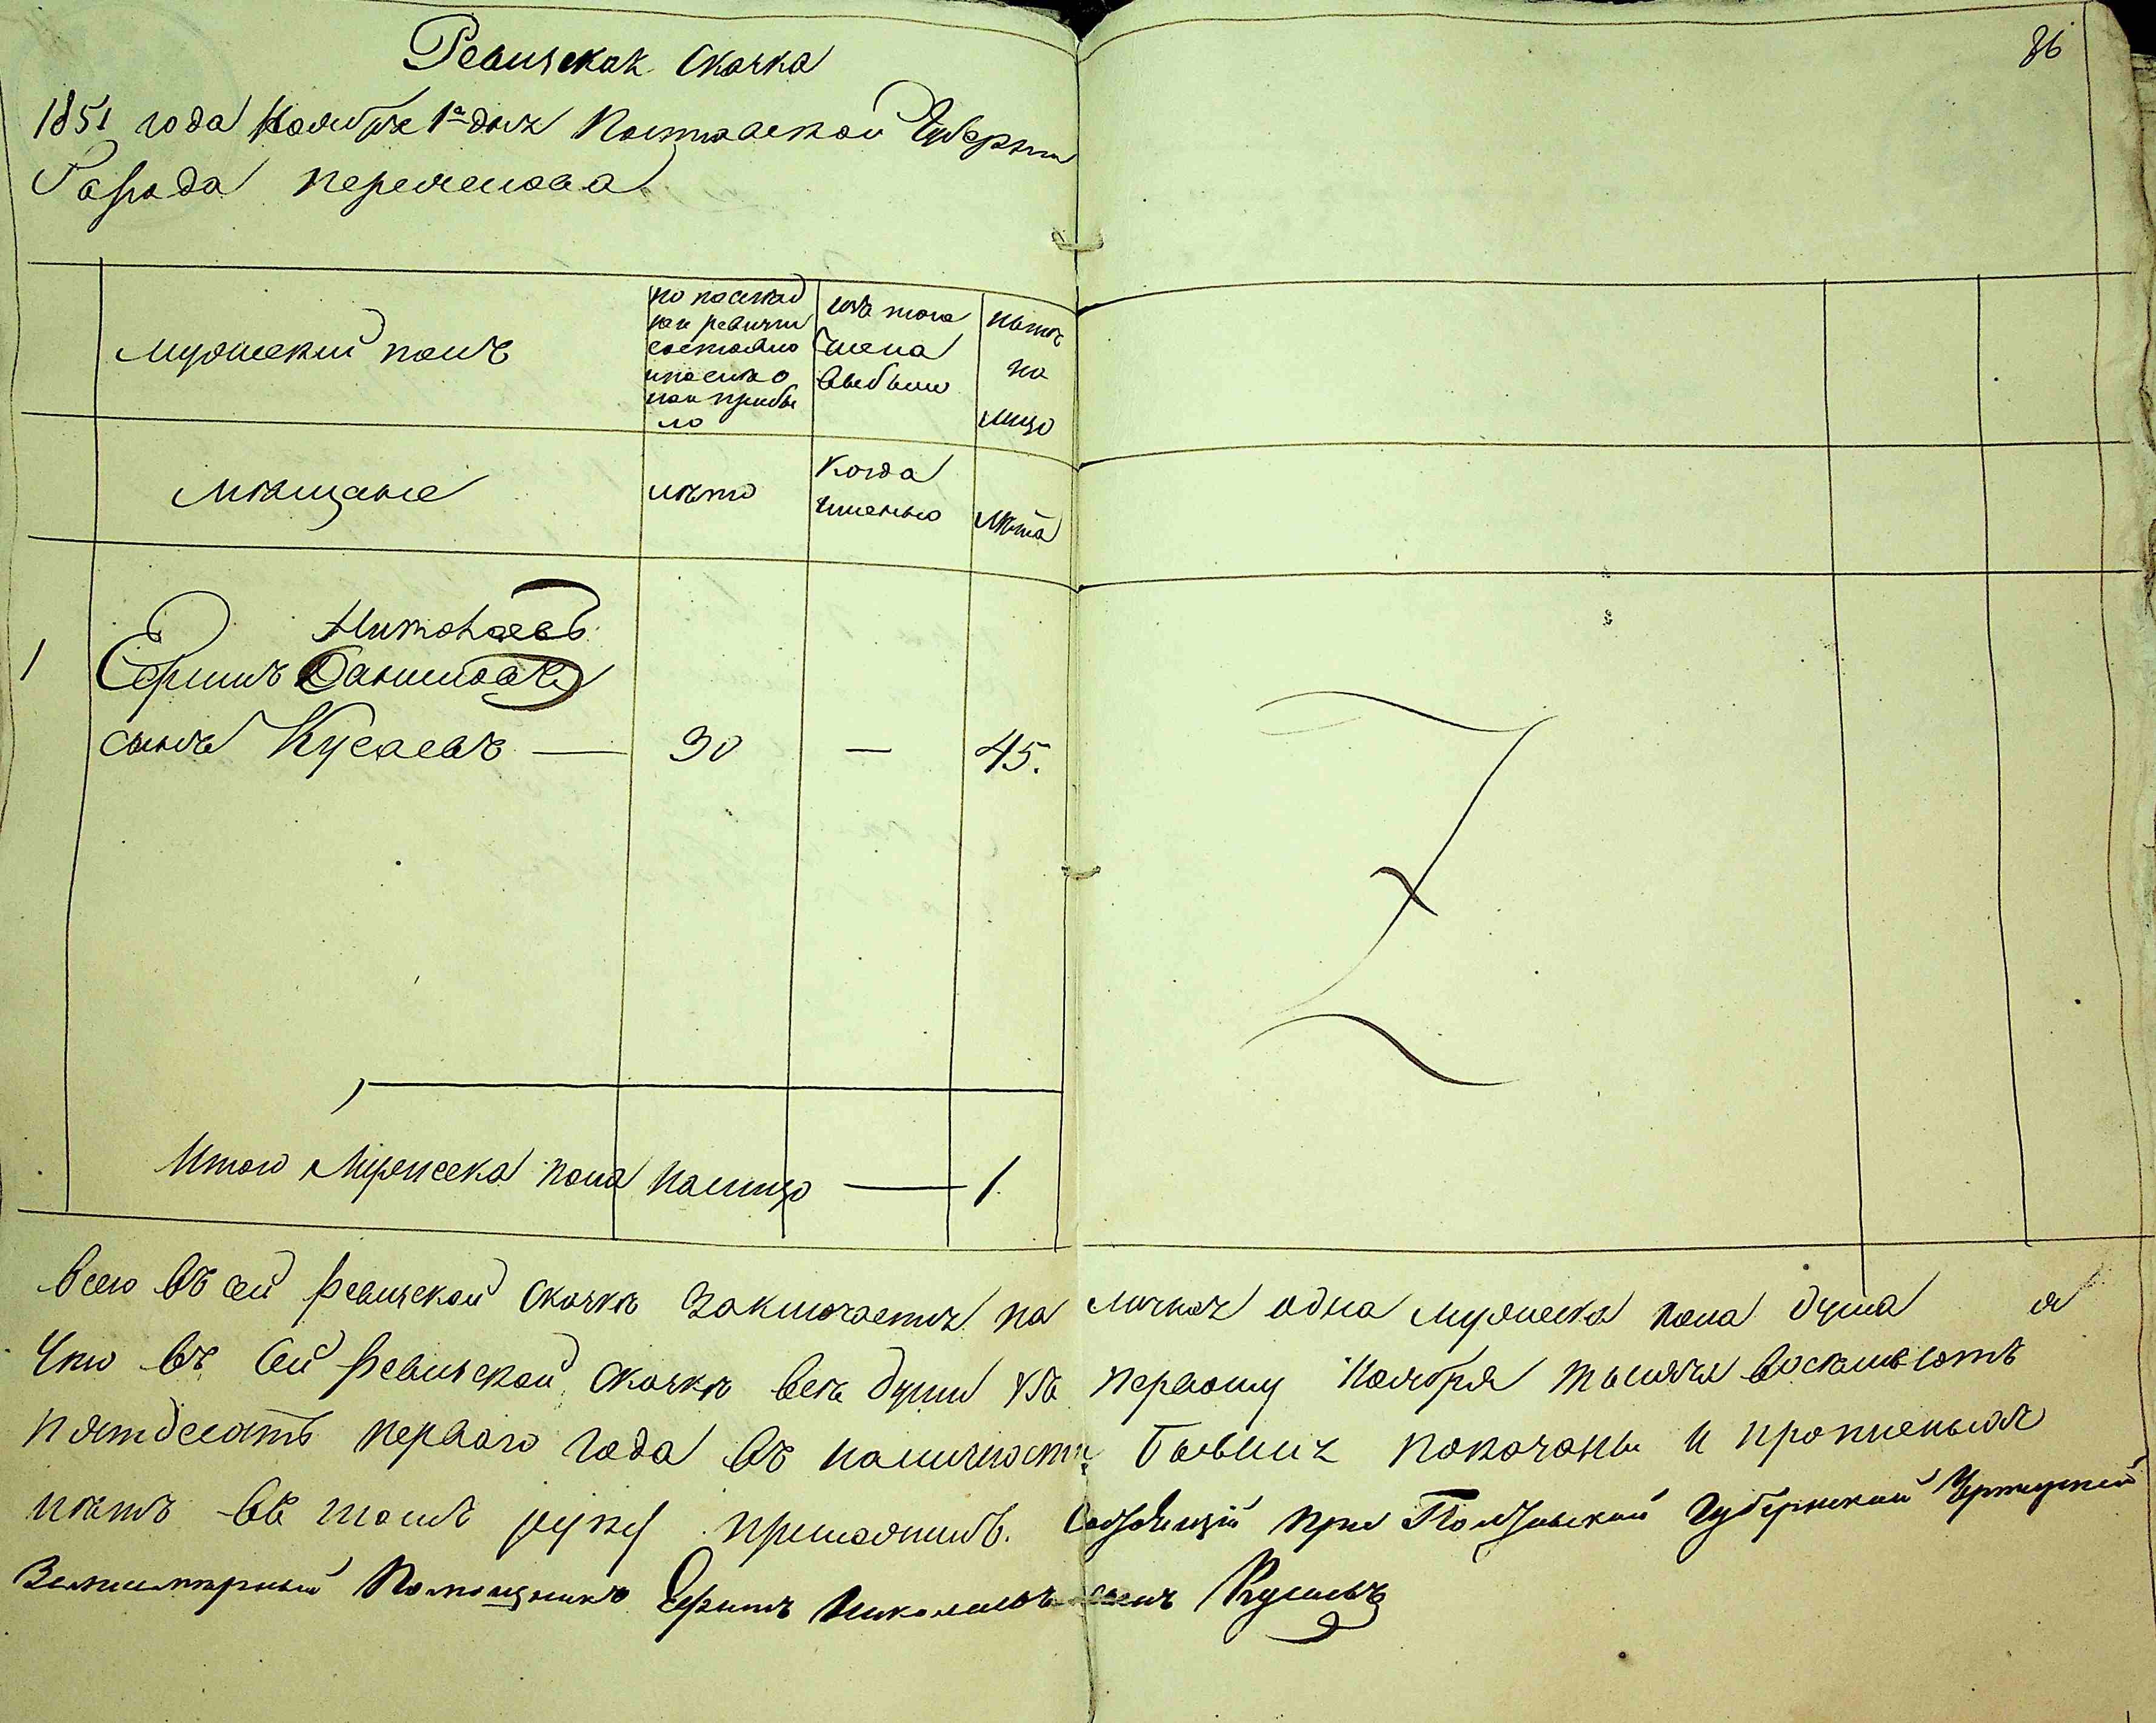 86
Ревизская сказка
1851 года Ноября 1го дня Полтавской Губернии
Города Переяслова
мужеский полъ
по послед
ней ревизіи
состояло
и после о
ной прибы
ло
изъ того
числа
выбыло
ныне
на
лицо
Мещане
лета
Когда
именно
лета
Николаевъ
1 Ефимъ Даниловъ
сынъ Кусаевъ — 30 — 45.
Итого Мужеска пола налицо — 1.
Всего въ сей ревизской сказке заключается на личная одна мужеска пола душа и
Что въ сей ревизской сказке все души къ первому Ноября тысяча восемьсотъ
пятдесятъ перваго года въ наличности бывшія показаны и прописныхъ
нетъ въ томъ руку приложилъ. Состоящій при Полтавской Губернской Чертежной
Землемерный Помощникъ Ефимъ Николаевъ сынъ Кусаевъ